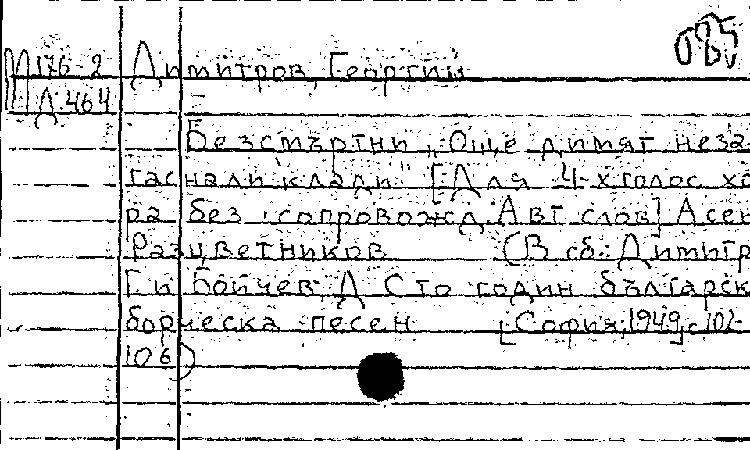 085
М 176-2 Димитров, Георгий
Д 464
Безсмъртни "Още димят неза-
гаснали клади" [Для 4-хголос. хо-
ра без сопровожд. Авт. слов] Асен
Разцветников (В сб.: Димитр
Г. и Бойчев, Д. Сто годин българск
борческа песен [София, 1949], с. 102-
106)